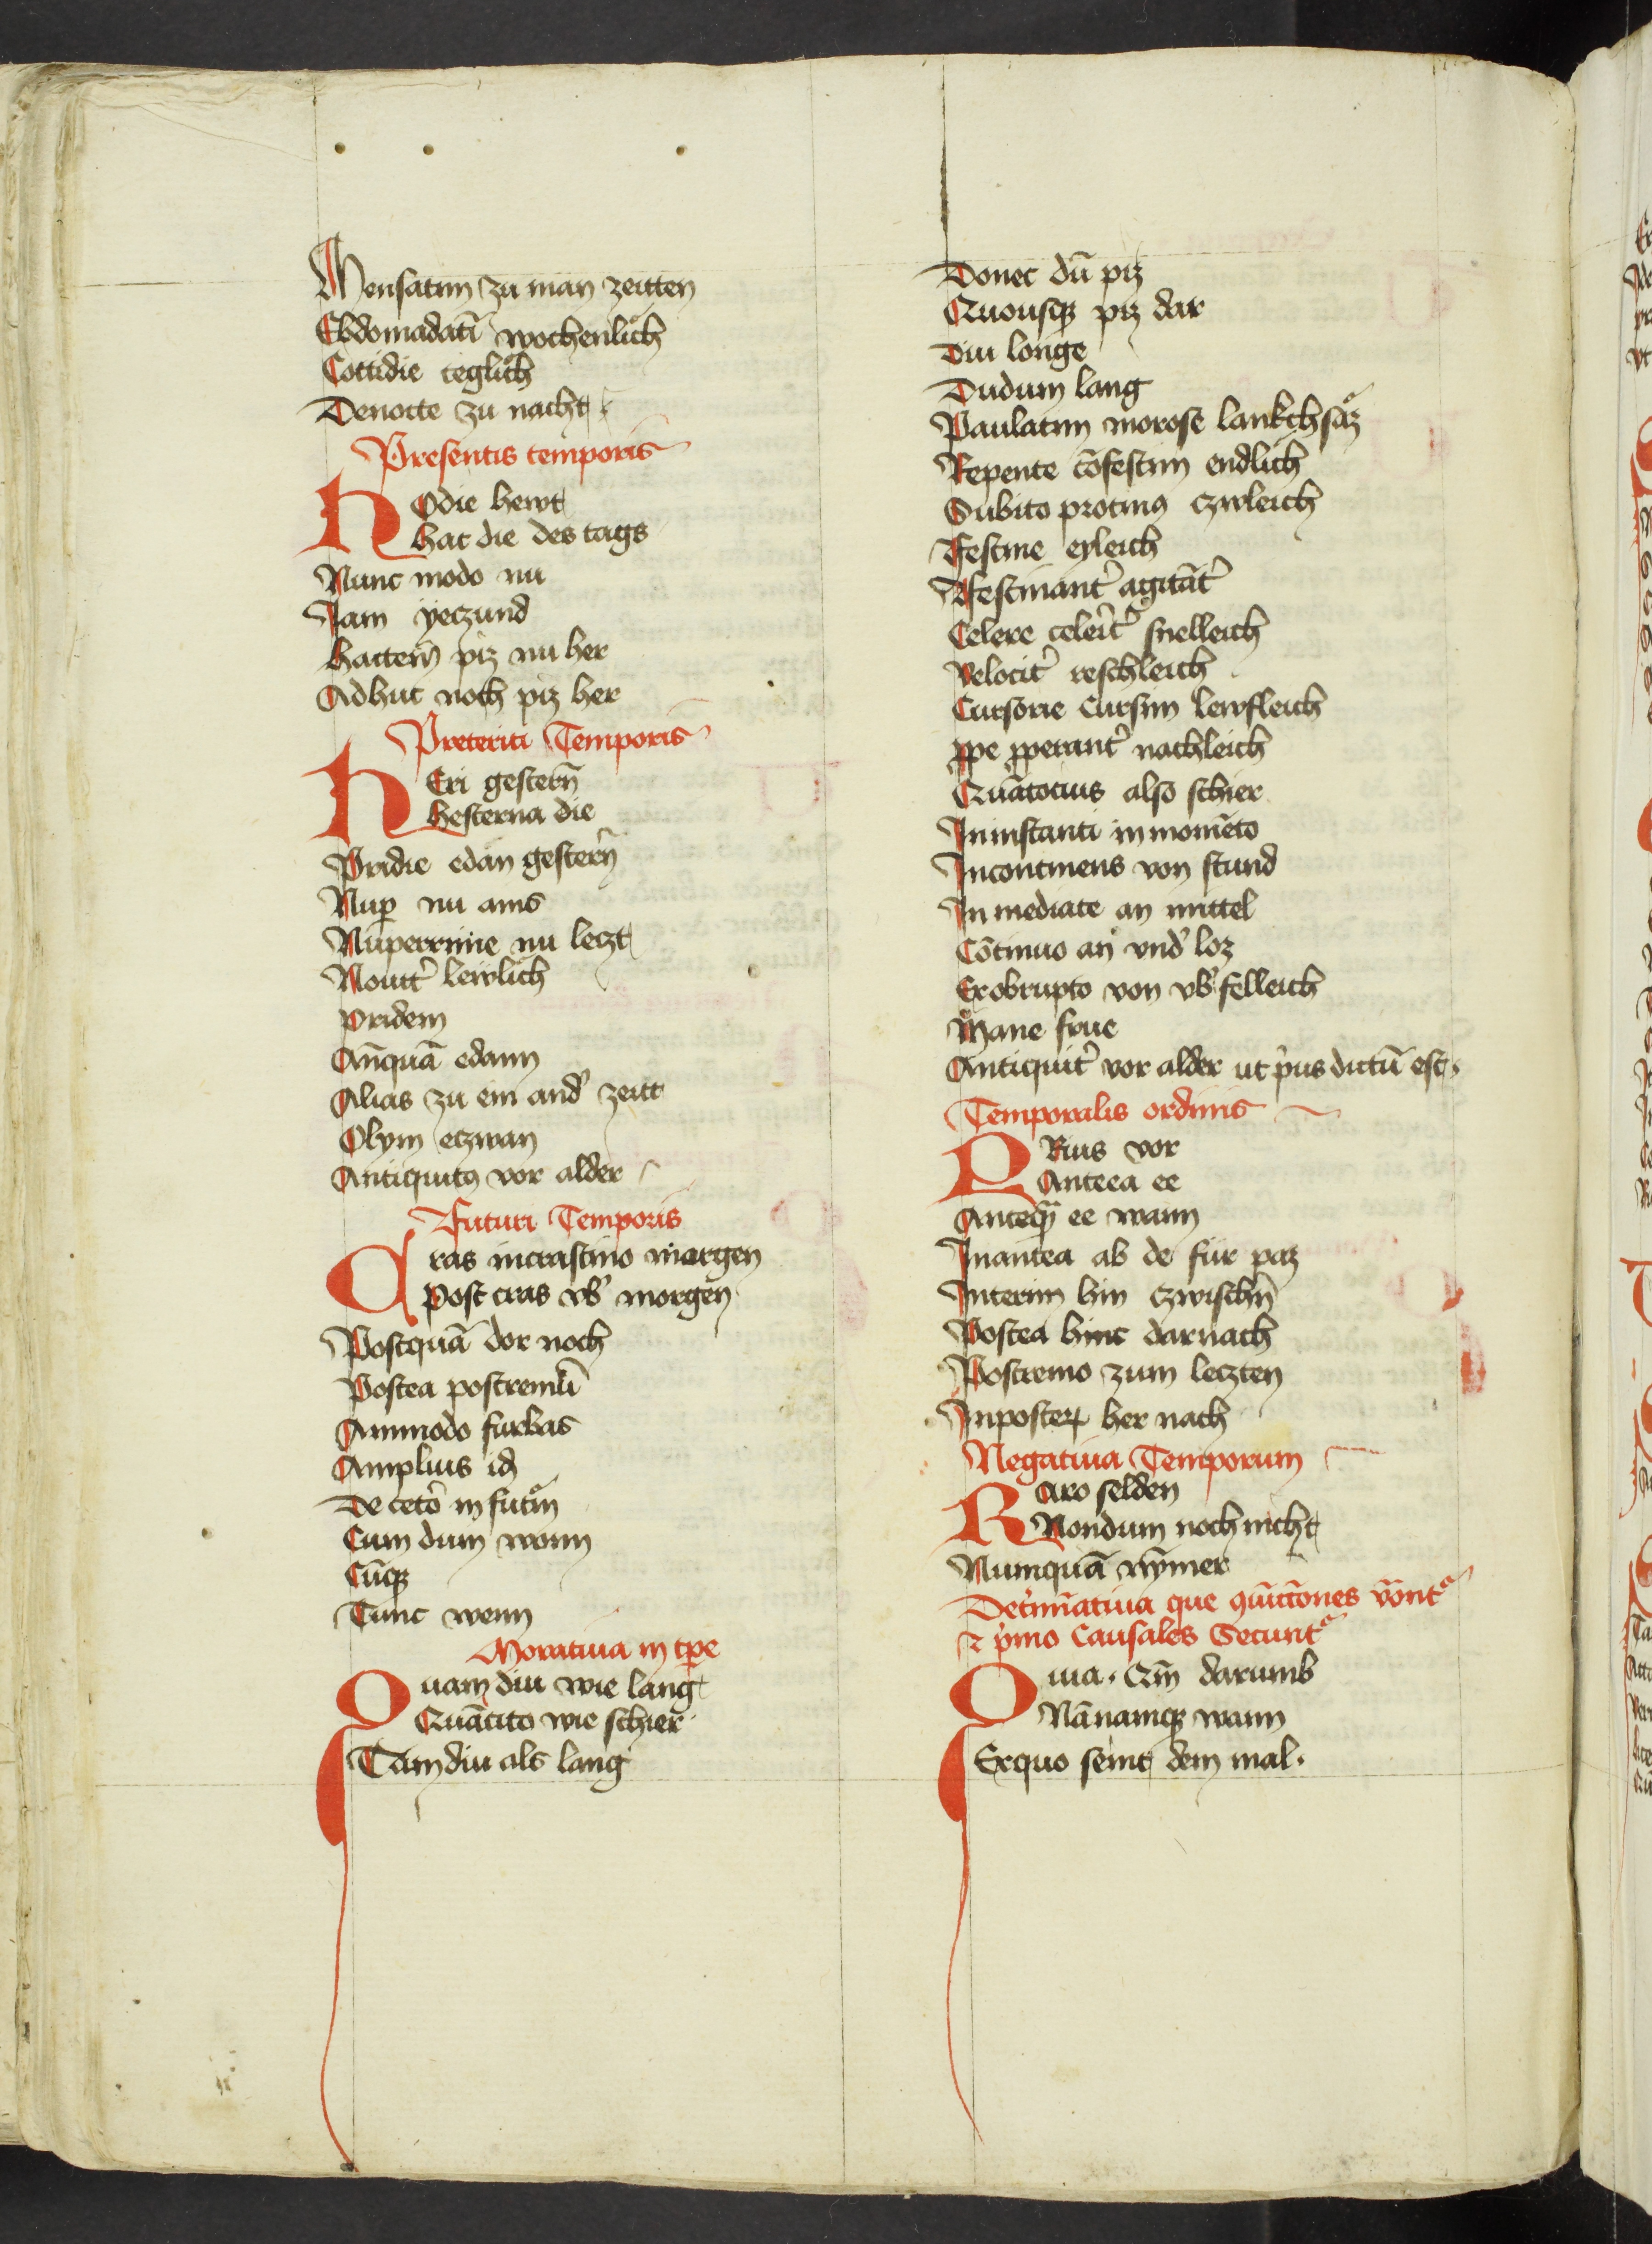 Mensatim zu man zeitten
Ebdomadatī wochenlich
Cottidie teglich
Denocte zu nacht
Presentis temporis
HOdie hewt
hac die des tags
Nunc modo nu
Jam yeczund
hacten̄ piz nu her
Adhuc noch piz her
Preteriti Temporis
HEri gestern̄
hesterna die
Pridie edan gestern̄
Nuꝑ nu ains
Nuperrime nu leczt
Nouit͛ lewlich
pridem
An̄quā edann
Alias zu ein and͛ zeitt
Olym etzwan
Antiquitꝰ vor alder
Futuri Temporis
Cras incrastino margen
Post cras vb͛ morgen
Postquā dor noch
Postea postremū
Ammodo furbas
Amplius id
De ceto͛ in futm̄
Cum dum wonn
Cūqꝫ
Tunc wenn
Moratiua in tꝑe
Quam diu wie lang
Quātito wie schier
Tamdiu als lang
Donec dū piz
Quousqꝫ piz dar
Diu longe
Dudum lang
Paulatim morose lankchsaz
Repente cōfestim endlich
Subito protinꝰ czwleich
Festine eyleich
Festinant͛ agitāt͛
Celere celerit͛ snelleich
Velocit͛ reschleich
Cursorie Cursim lewfleich
ꝓpe ꝓperant͛ nachleich
Quātocius also schier
Ininstanti in momēto
Incontinens von stund
In mediate an mittel
Cōtinuo an vnd͛ loz
Exobrupto von vb͛felleich
Mane frue
Antiquit͛ vor alder ut p͛us dictū est
Temporalis ordinis
PRius vor
Anteea ee
Anteqꝫ̄ ee wann
Inantea ab de fur paz
Interim hin czwischn̄
Postea hinc darnach
Postremo zum leczten
Inposterꝝ her nach
Negatiua Temporum
Raro selden
Nondum noch nicht
Numquā nymer
Det͛minatiua que 9iūctiones vōnt͛
⁊ p͛mo Causales Secunt͛
Quia . Qm̄ darumb
Nā namqꝫ wann
Exquo seint dem mal .